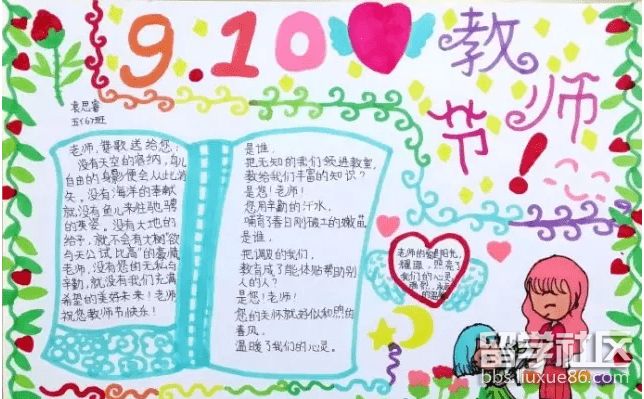 9.10
教师节！
袁思睿
五(6)班
老师，赞歌送给您：
没有天空的容纳，鸟儿
自由的身影便会从此消
失。没有海洋的奉献
就没有鱼儿来驰骋
的英姿。没有大地的
给予，就不会有大树"欲
与天公试比高"的豪情
老师，没有您的无私与
辛勤，就没有我们充满
希望的美好未来！老师
祝您教师节快乐！
是谁，
把无知的我们领进教室，
教给我们丰富的知识？
是您！老师！
您用辛勤的汗水，
哺育了春日刚破土的嫩苗
是谁，
把调皮的我们，
教育成了能体贴帮助别
人的人？
是您！老师！
您的美师就好似和煦的
春风，
温暖了我们的心灵。
老师的爱是阳光，
照亮了
我们的心灵
留学社区
bbs.liuxue86.com